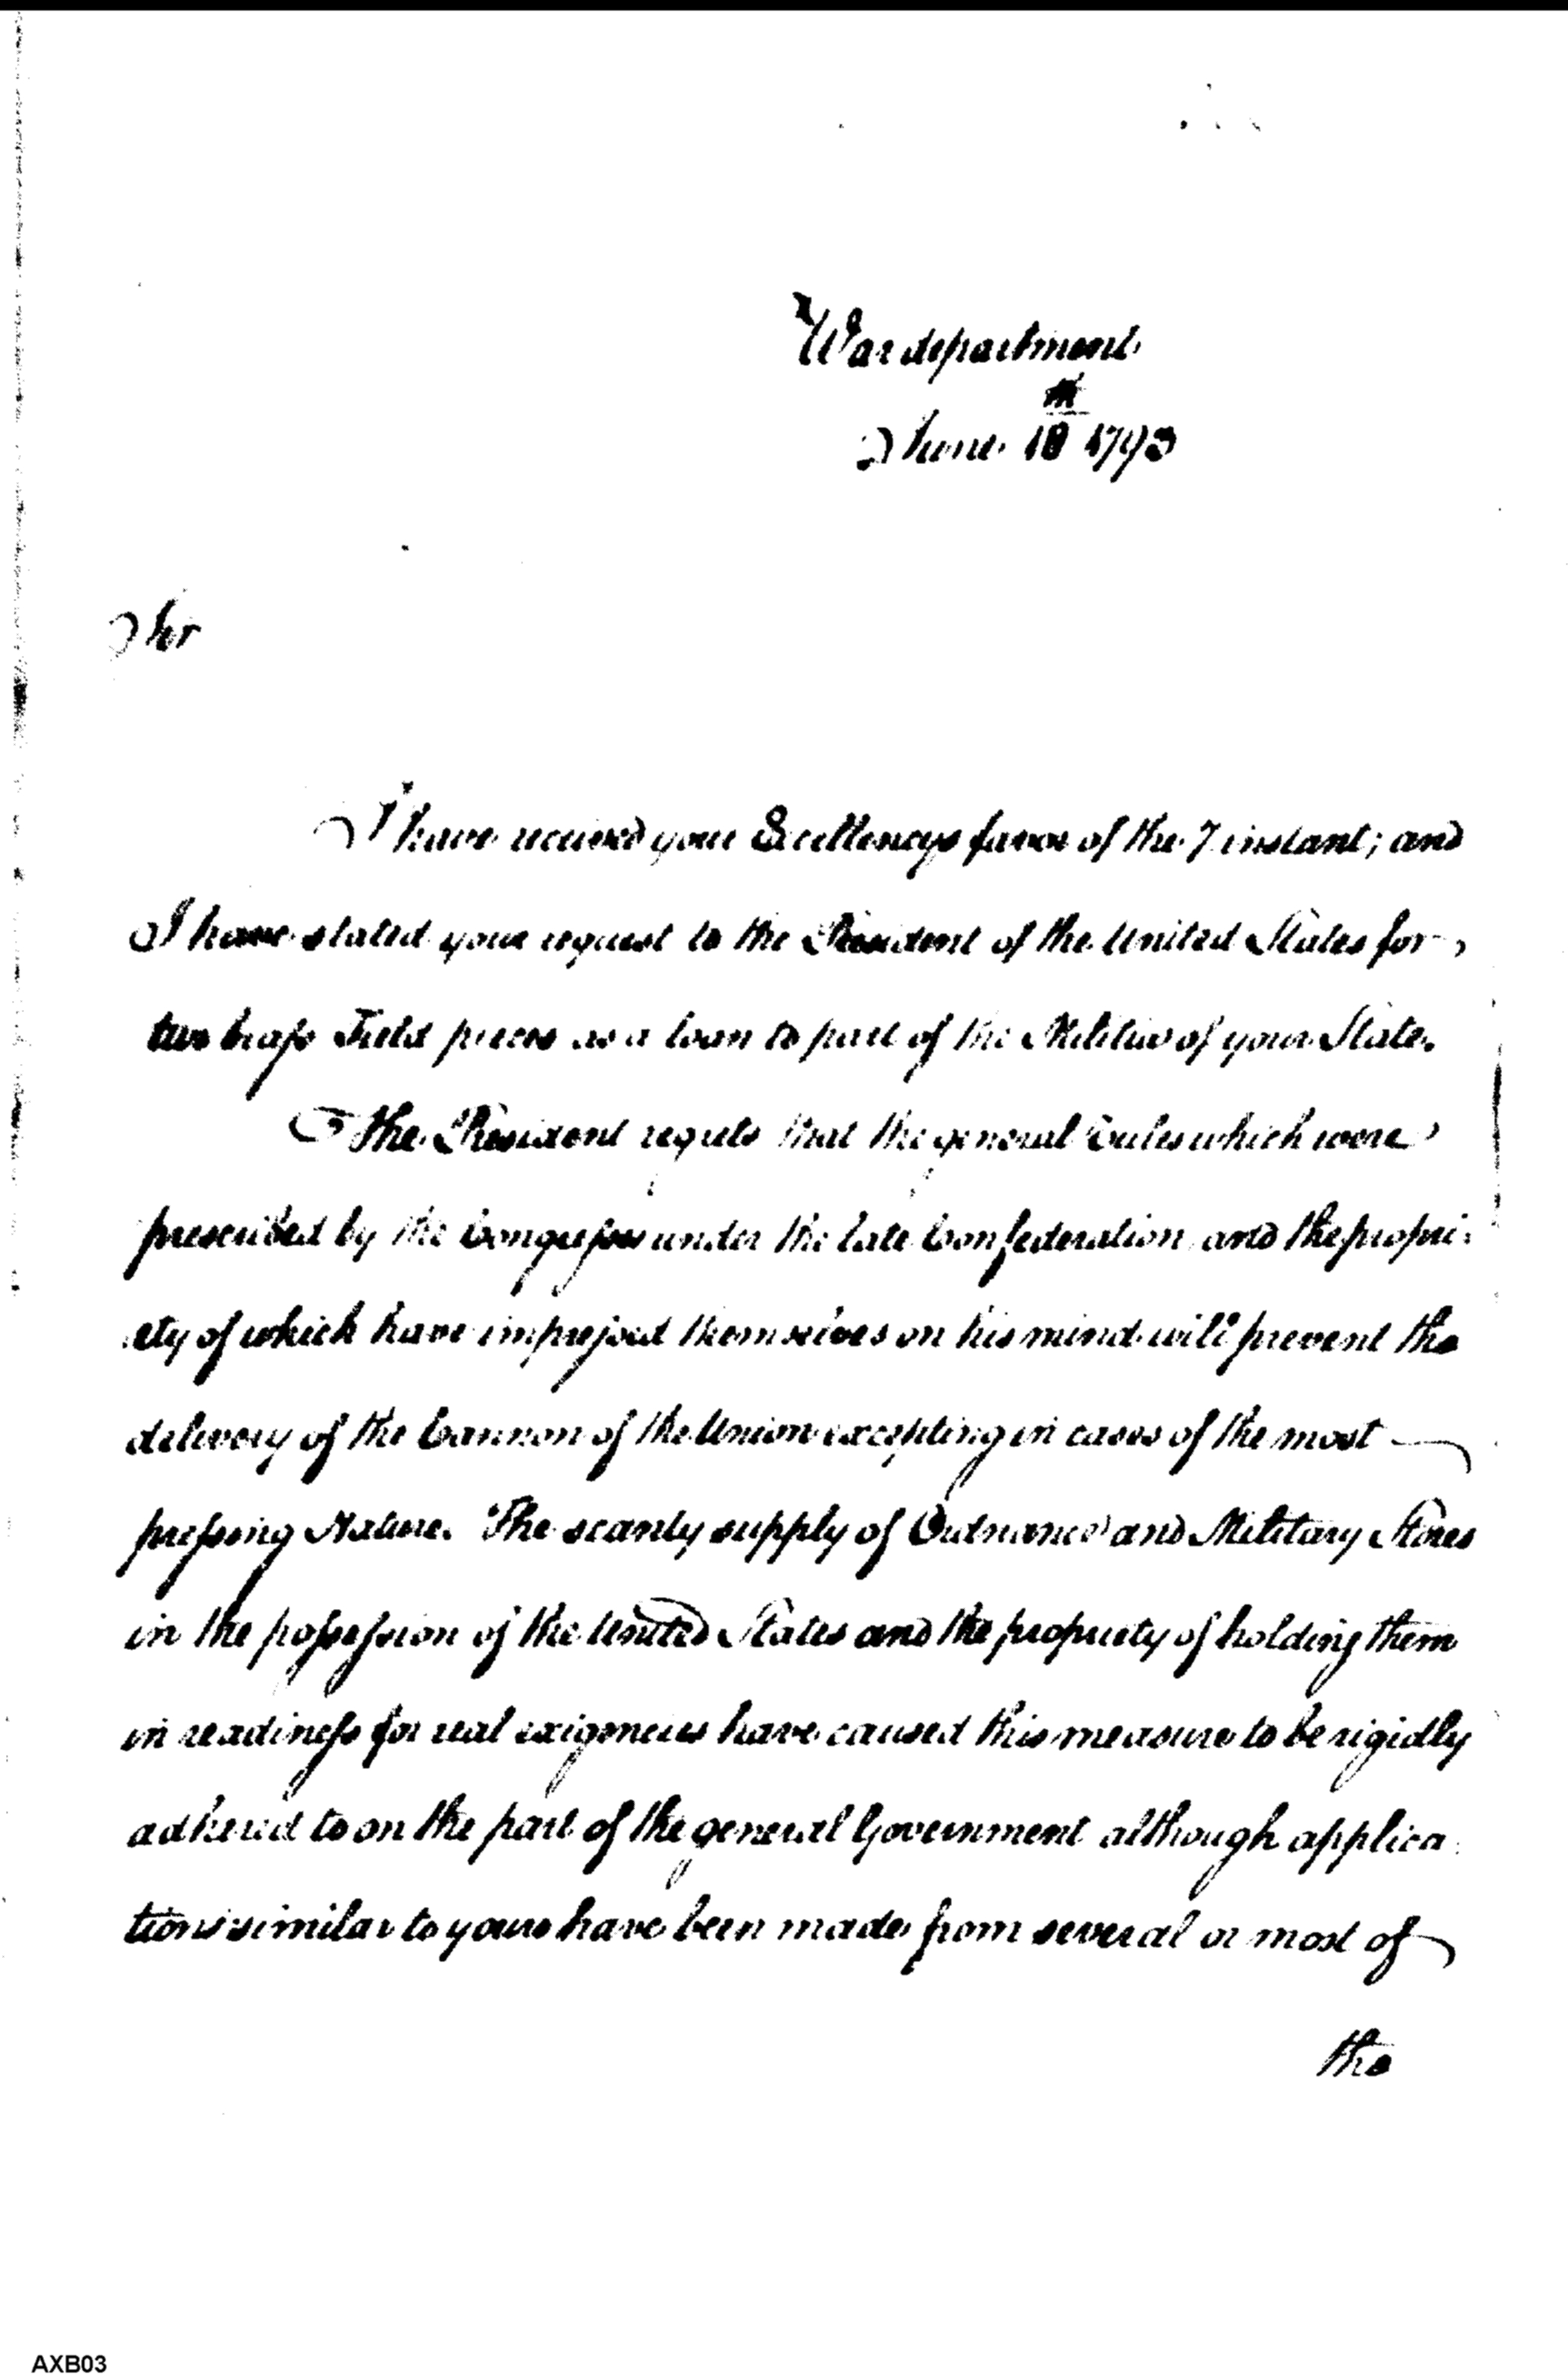 War department
June 18th 1793
Sir
I have received your Excellencys favor of the 7 instant; and
I have stated your request to the President of the United States for
two brass Field pieces as a loan to part of the Militia of your State.
The President regrets that the general rules which were
prescribed by the Congress under the late Confederation and the propri-
ety of which have impressed themselves on his mind will prevent the
delivery of the Cannon of the Union excepting in cases of the most
pressing Nature. The scanty supply of Ordnance and Military Stores
in the possession of the United States and the propriety of holding them
in readiness for real exigencies have caused this measure to be rigidly
adhered to on the part of the general Government although applica
tions similar to yours have been made from several or most of
the
AXB03